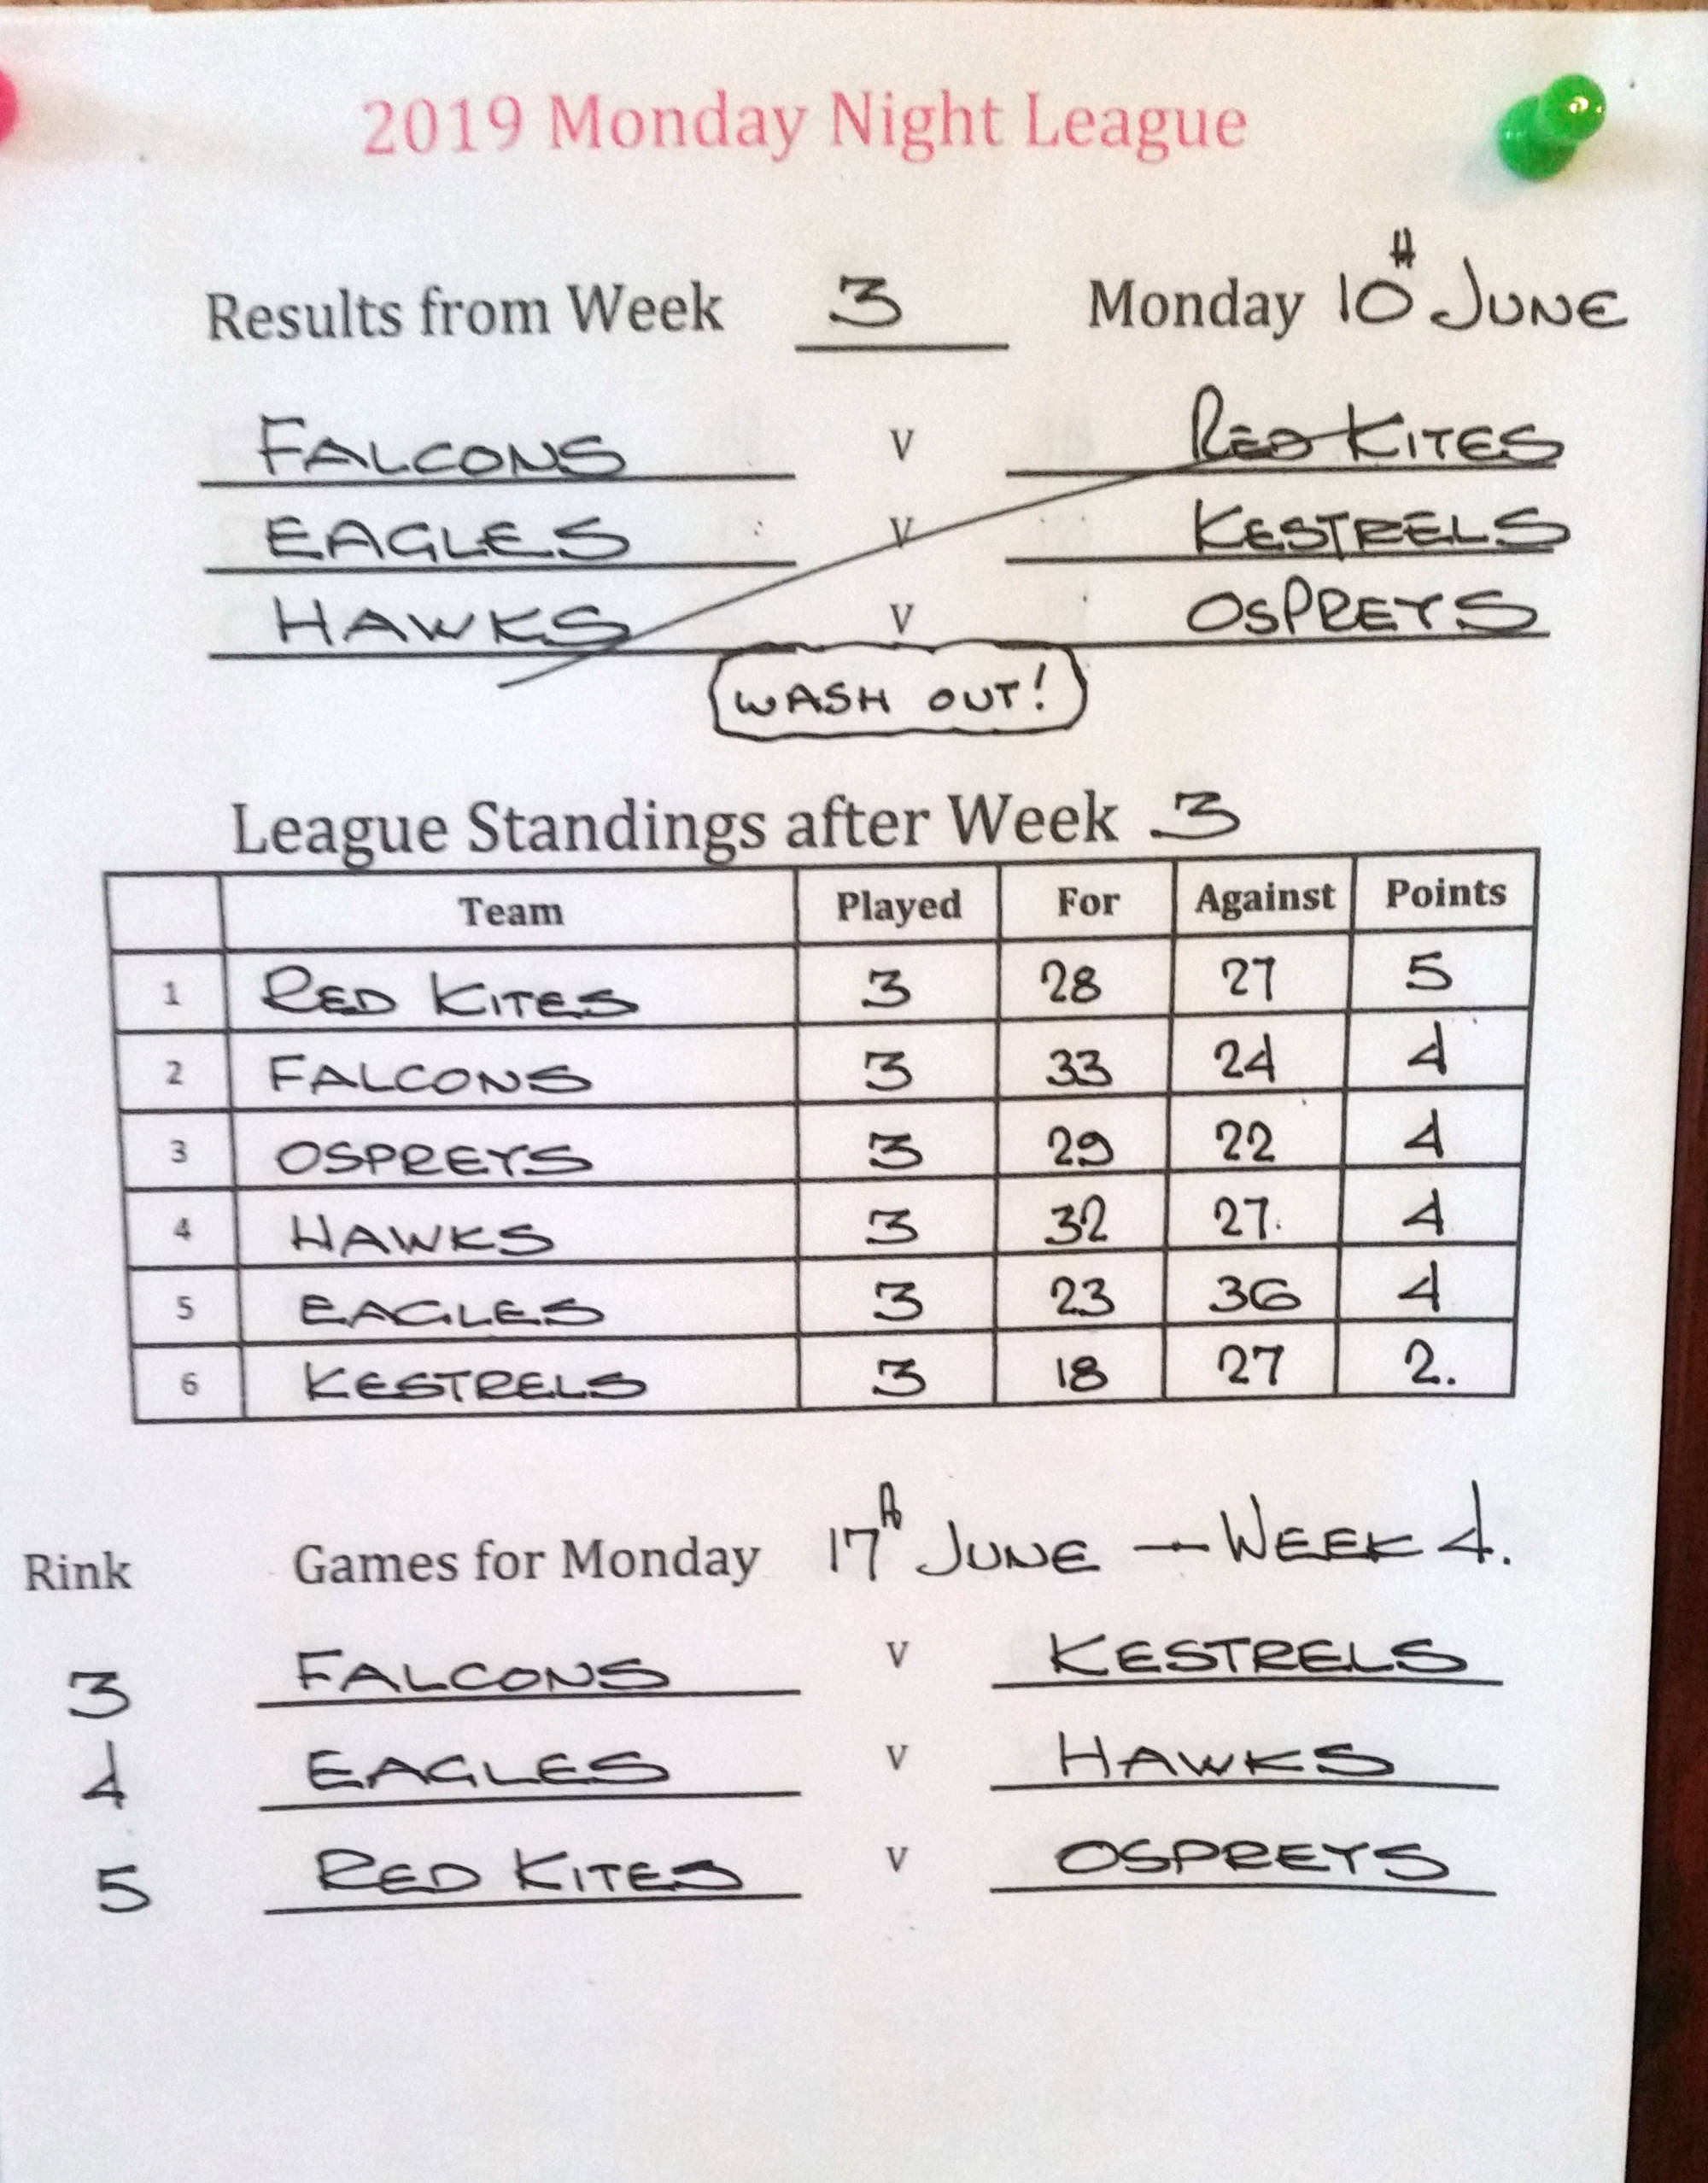 2019 Monday Night League
Results from Week 3 Monday 10th JUNE
FALCONS v RED KITES
EAGLES v KESTRELS
HAWKS v OSPREYS
WASH OUT!
League Standings after Week 3
Team Played For Against Points
1 RED KITES 3 28 27 5
2 FALCONS 3 33 24 4
3 OSPREYS 3 29 22 4
4 HAWKS 3 32 27. 4
5 EAGLES 3 23 36 4
6 KESTRELS 3 18 27 2.
Rink Games for Monday 17th JUNE — WEEK 4.
3 FALCONS v KESTRELS
4 EAGLES v HAWKS
5 RED KITES v OSPREYS